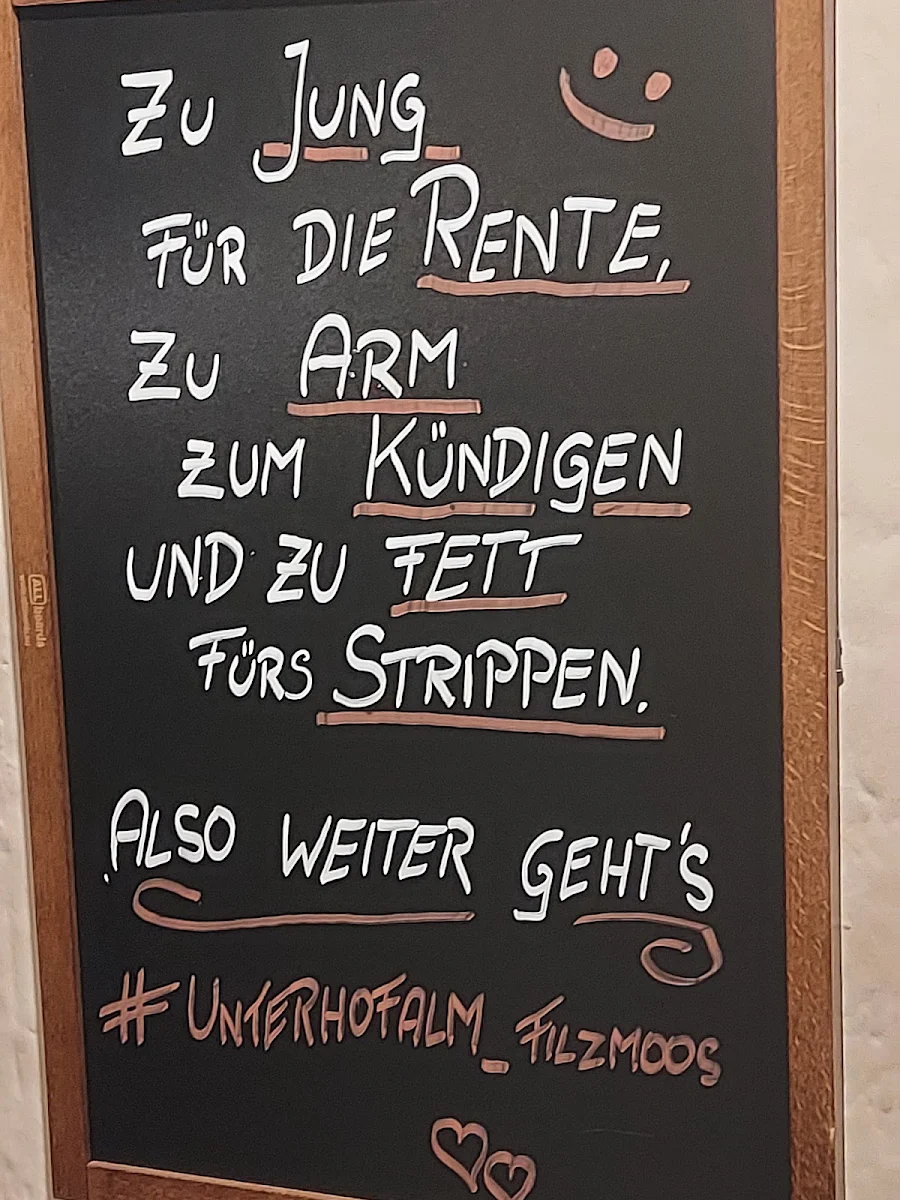 Zu JUNG
FÜR DIE RENTE,
ZU ARM
ZUM KÜNDIGEN
UND ZU FETT
FÜRS STRIPPEN.
ALSO WEITER GEHT'S
#UNTERHOFALM_FILZMOOS
ALL boards